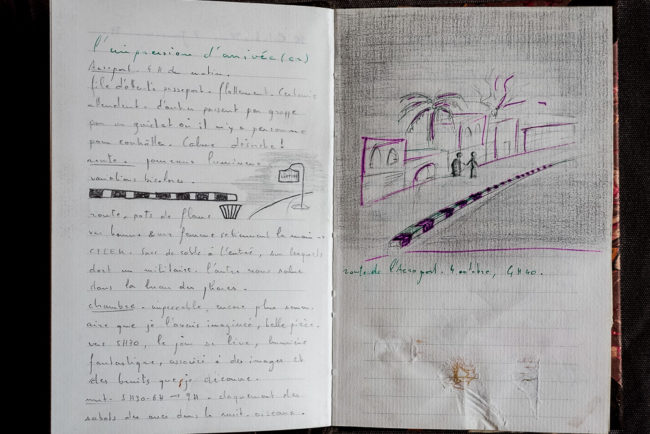 l'impression d'arrivée (ex)
Aeroport. 4H du matin.
file d'attente passeport. flottement. Certains
attendent. d'autres passent par grappe
par un guichet où il n'y a personne
pour contrôller. Calme
route. panneaux lumineux.
variations bicolores.
route, pots de fleurs
un homme & une femme se tiennent la main
Sacs de sable à l'entrée, sur lesquels
dort un militaire. l'autre nous salue
dans la lueur des phares.
chambre. impeccable, encore plus
aire que je l'avais imaginée, belle pièce.
vers 5H30, le jour se lève, lumière
fantastique, associée à des images et
des bruits que je découvre.
nuit. 5H30-6H → 9H. claquement des
sabots des ânes dans la nuit. oiseaux.
route de l'Aeroport. 4 octobre, 4H40.